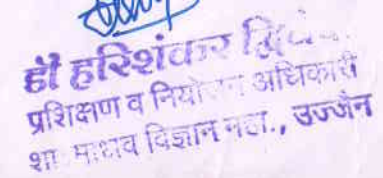 डॉ हरिशंकर
प्रशिक्षण व नियोजन अधिकारी
शा. माधव विज्ञान महा., उज्जैन